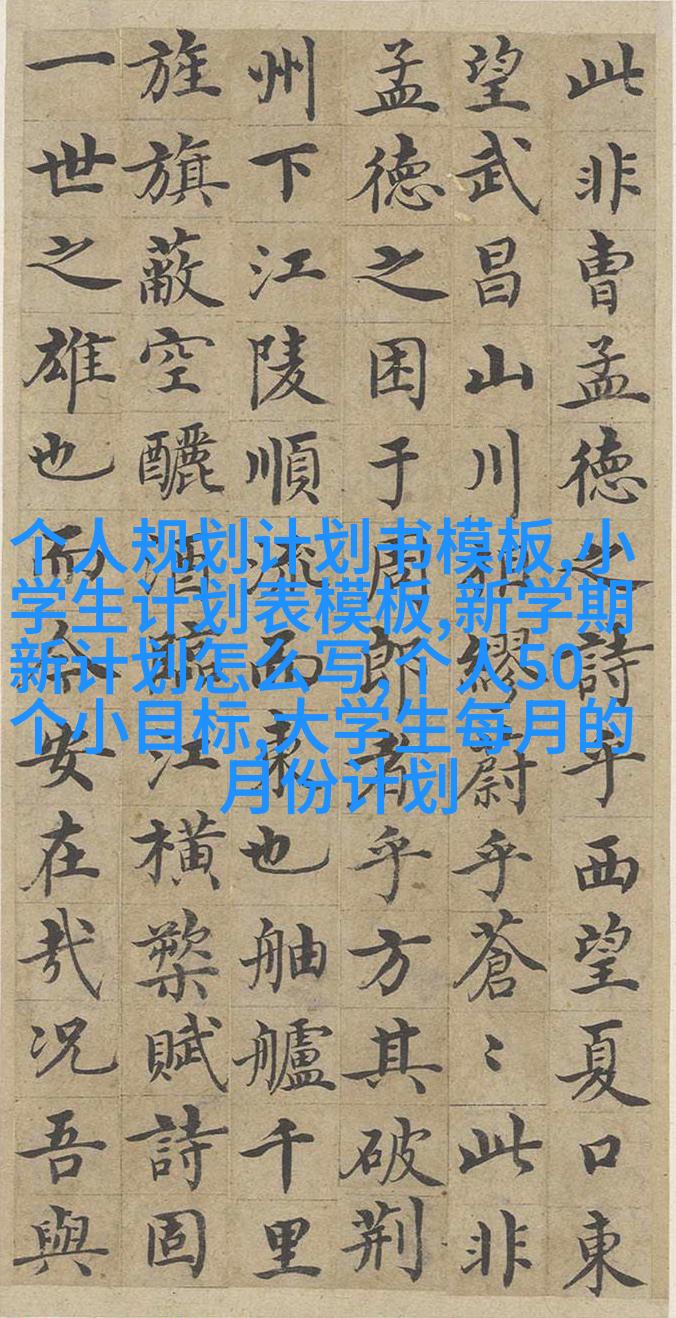 此非曹孟德之詩乎西望夏口東
望武昌山川相繆蔚乎蒼〻此非
孟德之困于周郎者乎方其破荆
州下江陵順流而東也舳艫千里
旌旗蔽空釃酒臨江横槊賦詩固
一世之雄也而今安在哉况吾與
个人规划计划书模板,小
学生计划表模板,新学期
新计划怎么写,个人50
个小目标,大学生每月的
月份计划